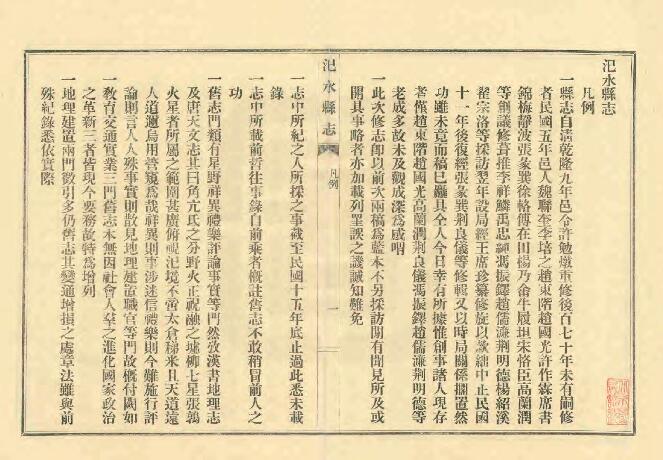 汜水縣志
凡例
一縣志自清乾隆九年邑令許勉燉重修後百七十年未有嗣修
者民國五年邑人魏聯奎李培之趙東階趙國光許作霖席書
錦梅靜波張彖巽徐輅傅在田楊乃翕牛履垣朱恪臣高蘭澗
等創議修葺推李祥麟禹忠鯶馮振鐸趙儒濂荆明德楊紹溪
翟宗洛等採訪翌年設局經王席珍纂修旋以款絀中止民國
十一年後復經張彖巽荆良儀等修輯又以時局關係擱置然
功雖未竟而稿已雕具全人今日幸有所據惟創事諸人現存
者僅趙東階趙國光高蘭澗荆良儀馮振鐸趙儒濂荆明德等
老成多故未及觀成深爲感喟
一此次修志卽以前次兩稿爲藍本不另採訪間有聞見所及或
開具事略者亦加載列罣誤之譏誠知難免
一志中所紀之人所採之事截至民國十五年底止過此悉未載
錄
一志中所載前哲往事錄自前乘者概註舊志不敢稍冒前人之
功
一舊志門類有星野祥異禮樂評論事實等門然攷漢書地理志
及唐天文志其曰角亢氐之分野火正祝融之墟柳七星張鶉
火星者所屬之範圍甚廣俯視汜境不啻太倉稊米且天道遠
人道邇烏用管窺爲哉祥異則事涉迷信禮樂則今難施行評
論則言人人殊事實則散見地理建置職官等門故槪付闕如
一敎育交通實業三門舊志本無因社會人羣之進化國家政治
之革新三者皆現今要務故特爲增列
一地理建置兩門徵引多仍舊志其變通增損之處章法雖與前
殊紀錄悉依實際
汜水縣志
凡例
一